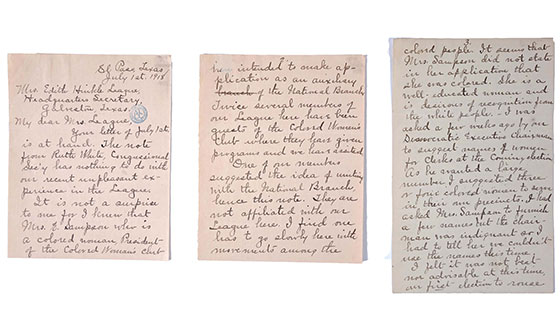 El Paso, Texas,
July 1st. 1918
Mrs. Edith Hinkle League,
Headquarters Secretary,
Galveston, Texas.
My dear Mrs. League;
Your letter of July 1st
is at hand. The note
from Ruth White, Congressional
Sec'y has nothing to do with
our recent unpleasant ex-
perience in the League.
It is not a surprise
to me for I knew that
Mrs. E. Sampson who is
a colored woman, President
of the Colored Woman's Club
intended to make ap-
plication as an auxiliary
branch of the National Branch.
Twice several members of
our League here have been
guests of the Colored Woman's
Club where they have given
programs and we have
One of our number
suggested the idea of uniting
with the National Branch,
hence this note. They are
not affiliated with our
League here. I find one
has to go slowly here with
movements among the
3
colored people. It seems that
Mrs. Sampson did not state
in her application that
she was colored. She is a
well-educated woman and
is desirous of recognition from
the white people. I was
asked a few weeks ago by our
Democratic Executive Chairman
to suggest names of women
for clerks at the coming election.
As he wanted a large
number I suggested three
or four colored women to serve
in their own precincts. I had
asked Mrs. Sampson to furnish
a few names but the chair-
man was indignant so I
had to tell her we couldn't
use the names this time.
I felt it was not best
nor advisable at this time,
our first election to rouse